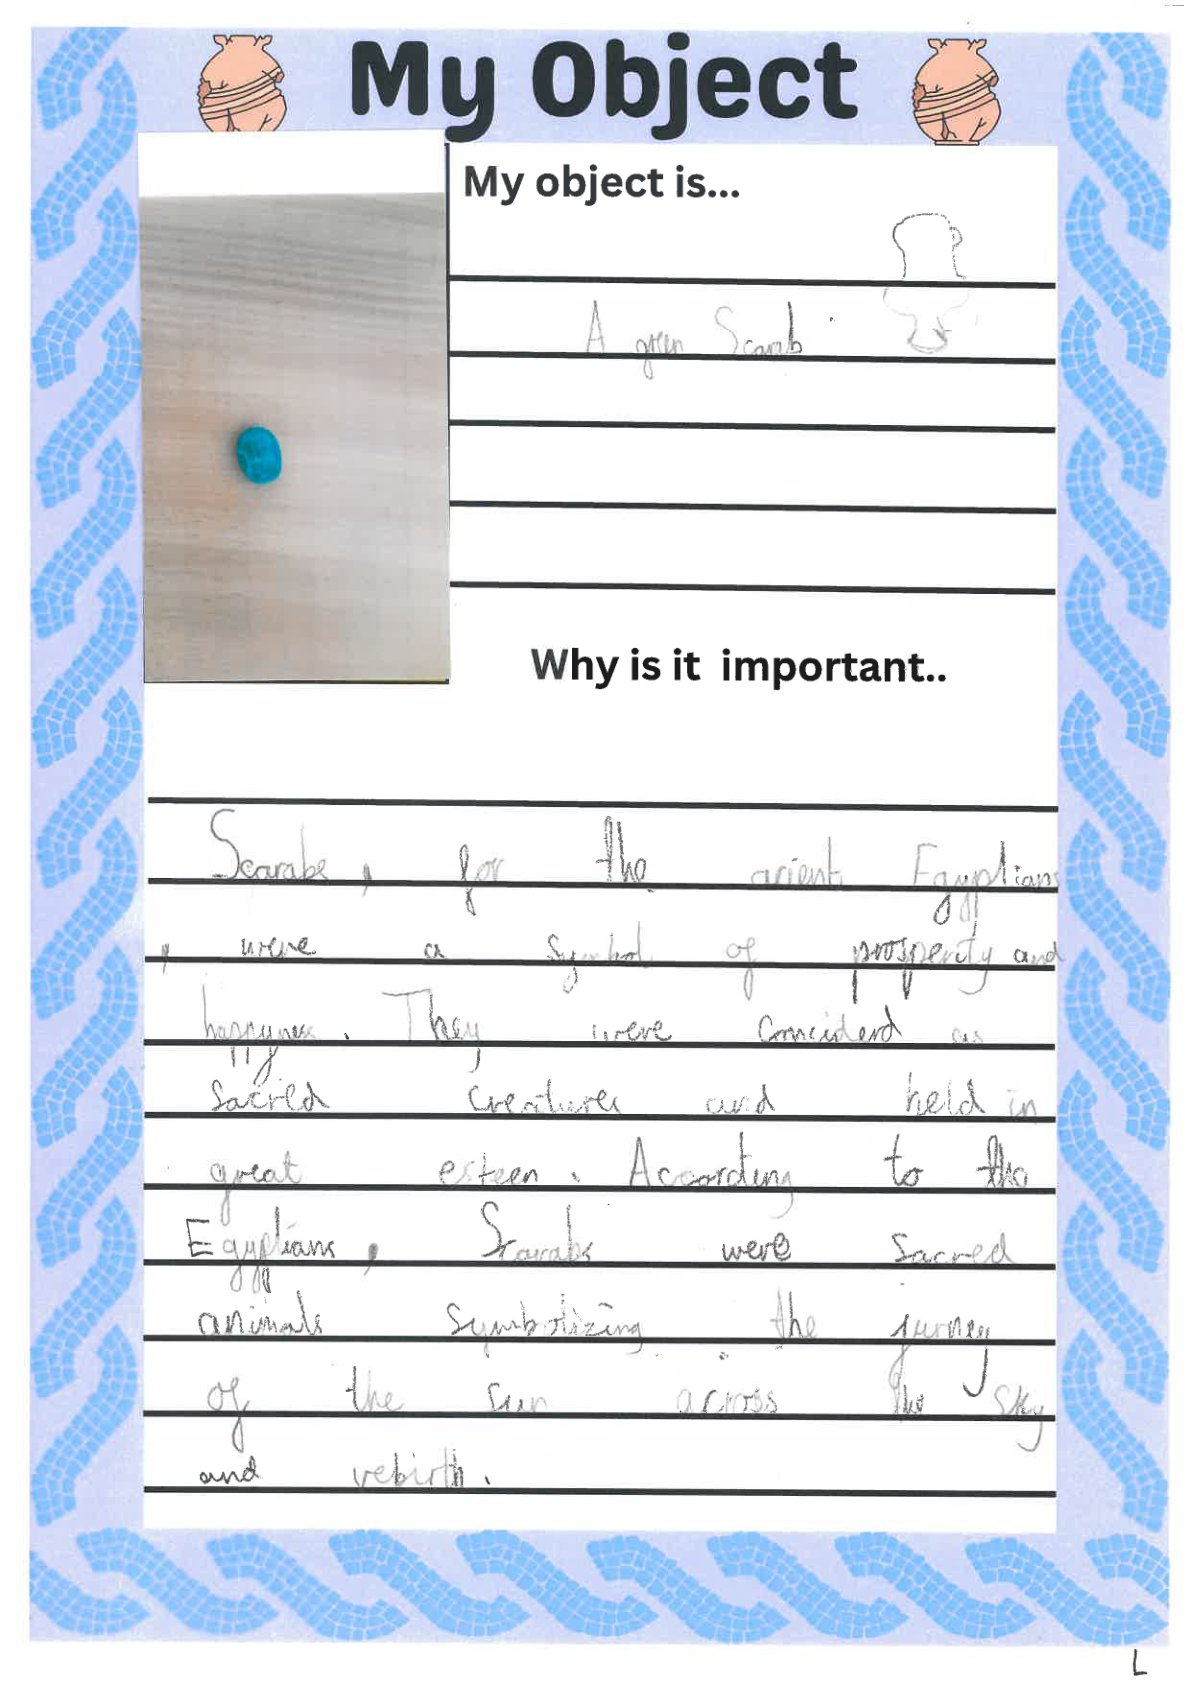 My Object
My object is...
A green Scarab
Why is it important..
Scarabs, for the anient Egyptians
, were a symbol of prosperity and
happyness. They were considerd as
sacred creatures and held in
great esteen. According to the
Egyptians, Scarabs were sacred
animals symbolizing the jurney
of the sun across the sky
and rebirth.
L